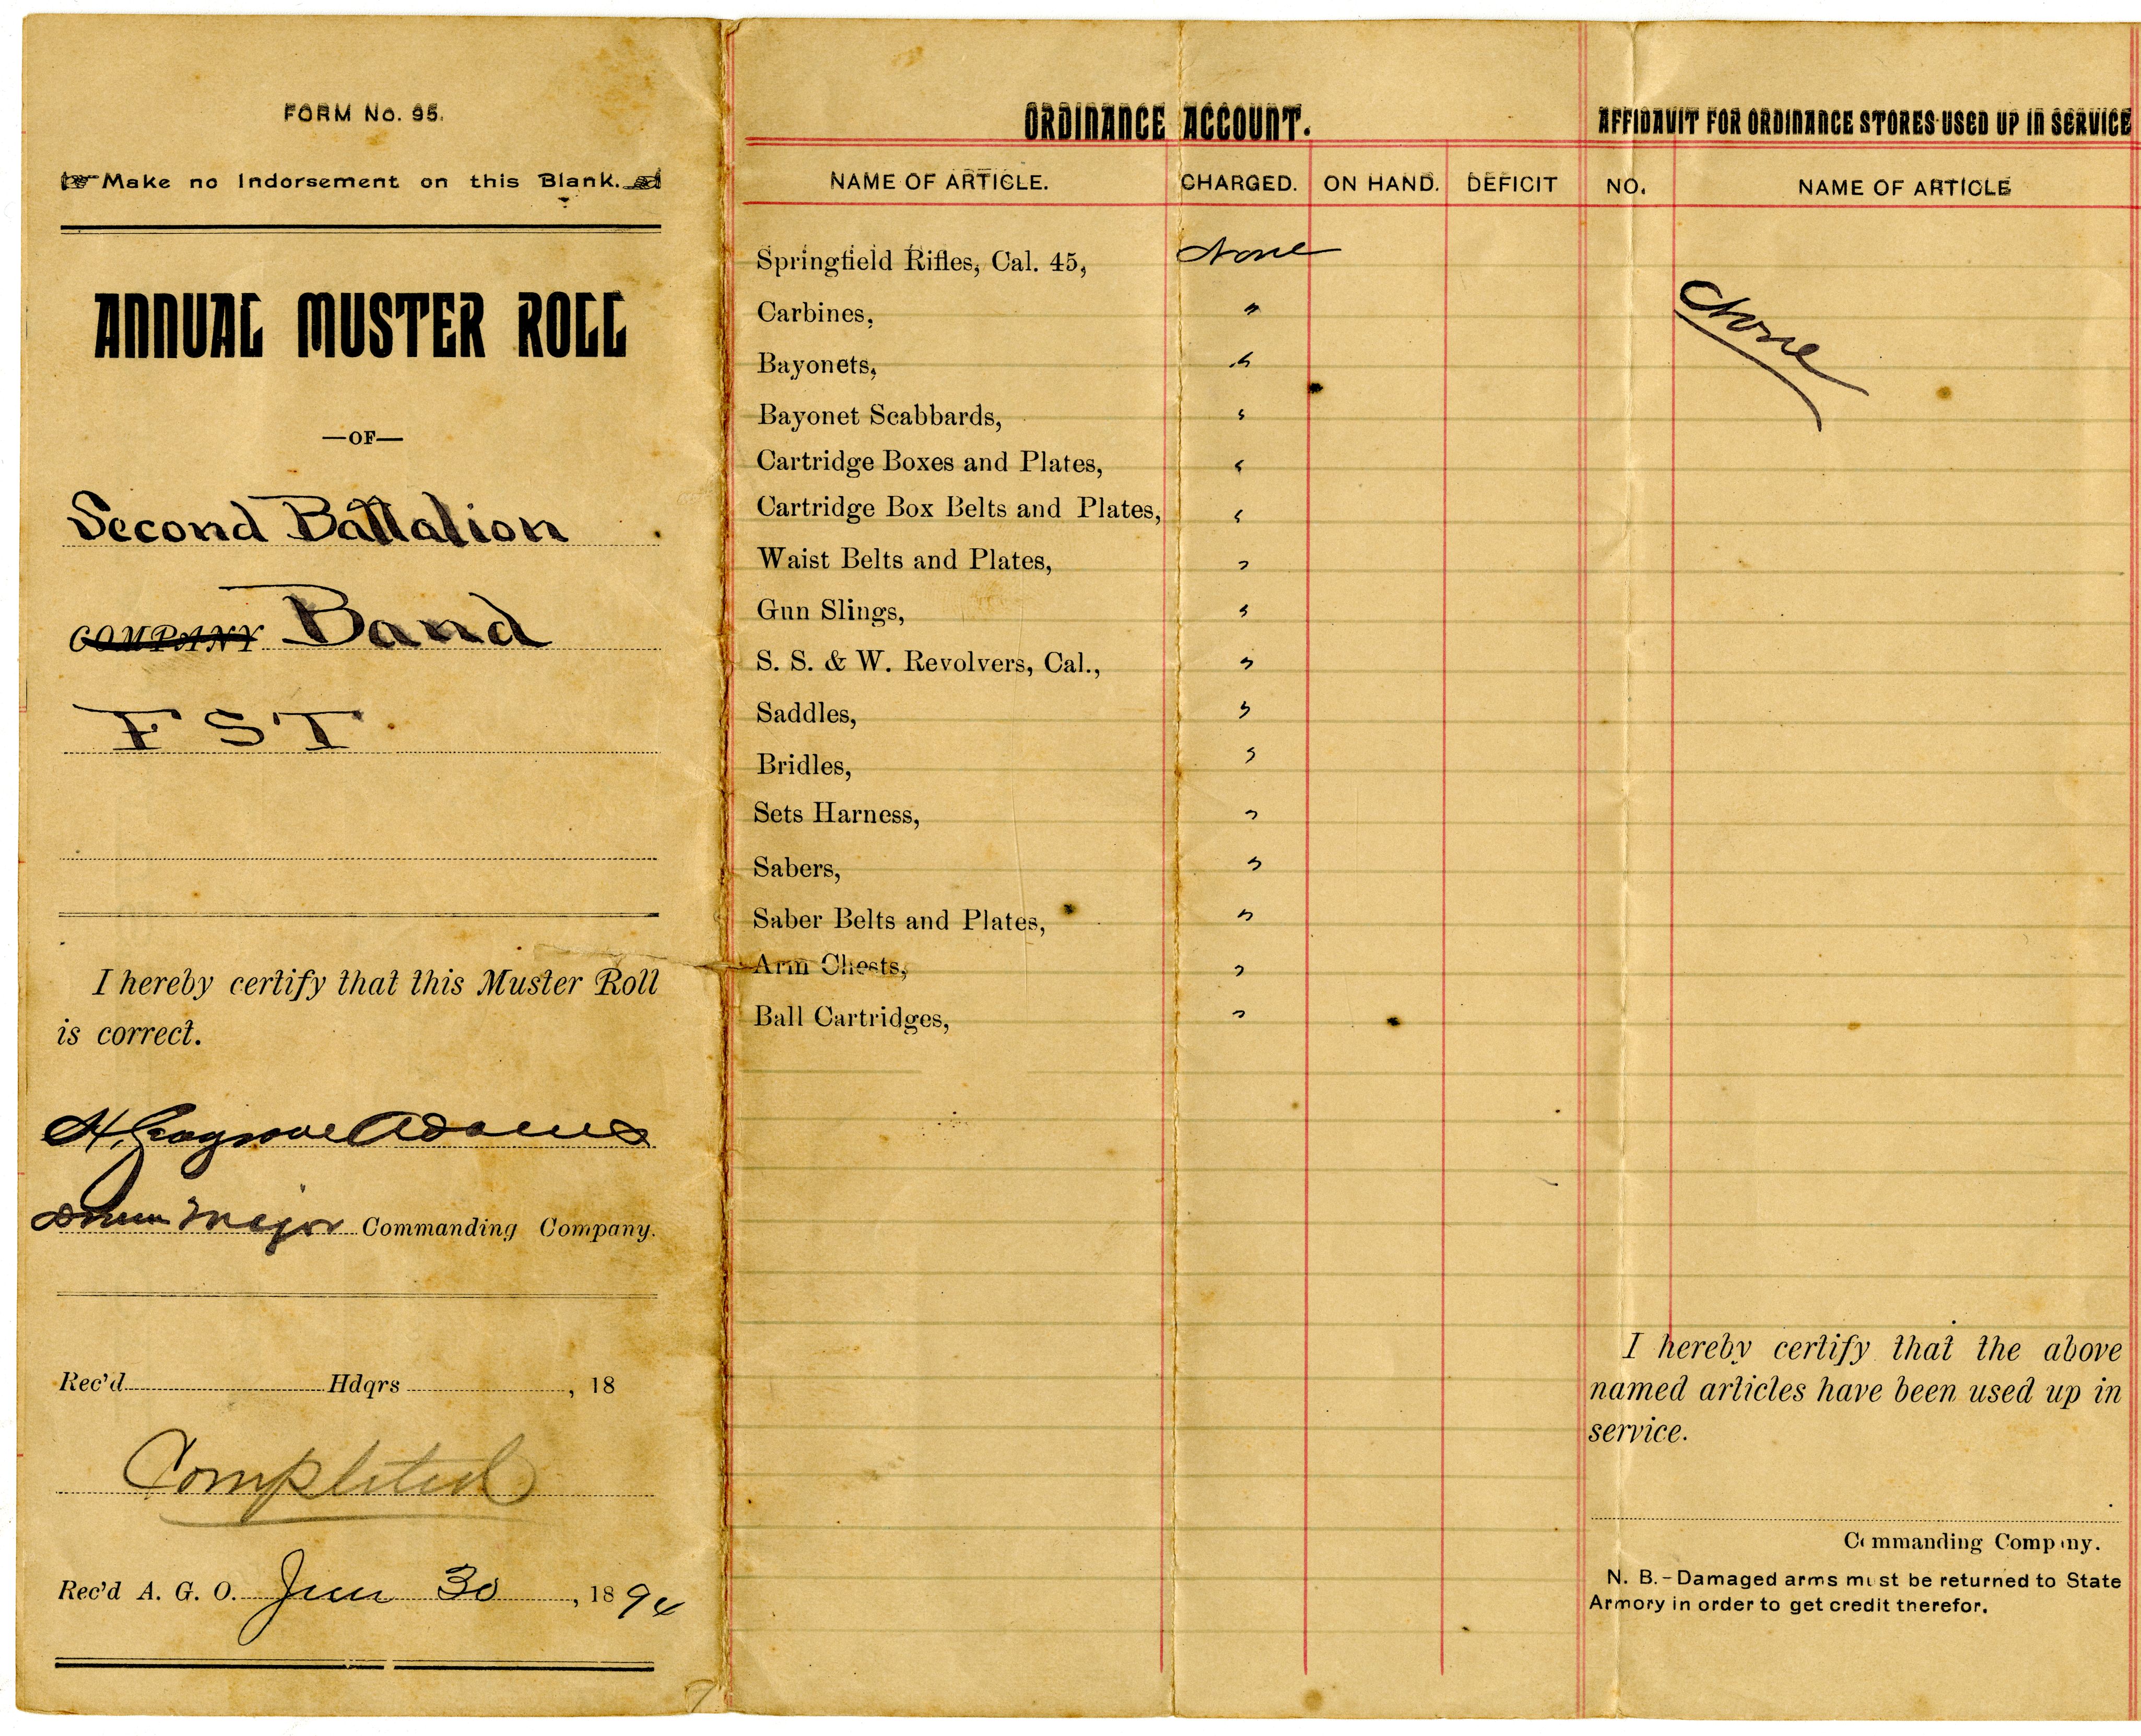 FORM No. 95.
Make no Indorsement on this Blank.
ANNUAL MUSTER ROLL
—OF—
Second Battalion
COMPANY Band
F S T
I hereby certify that this Muster Roll
is correct.
H. Adams
Drum Major Commanding Company.
Rec'd Hdqrs , 18
Completed
Rec'd A. G. O. Jun 30 , 1894
ORDINANCE ACCOUNT.
NAME OF ARTICLE. CHARGED. ON HAND. DEFICIT
Springfield Rifles, Cal. 45, None
Carbines, "
Bayonets, "
Bayonet Scabbards, "
Cartridge Boxes and Plates, "
Cartridge Box Belts and Plates, "
Waist Belts and Plates, "
Gun Slings, "
S. S. & W. Revolvers, Cal., "
Saddles, "
Bridles, "
Sets Harness, "
Sabers, "
Saber Belts and Plates, "
Arm Chests, "
Ball Cartridges, "
AFFIDAVIT FOR ORDINANCE STORES USED UP IN SERVICE
NO. NAME OF ARTICLE
None
I hereby certify that the above
named articles have been used up in
service.
Commanding Company.
N. B.-Damaged arms must be returned to State
Armory in order to get credit therefor.